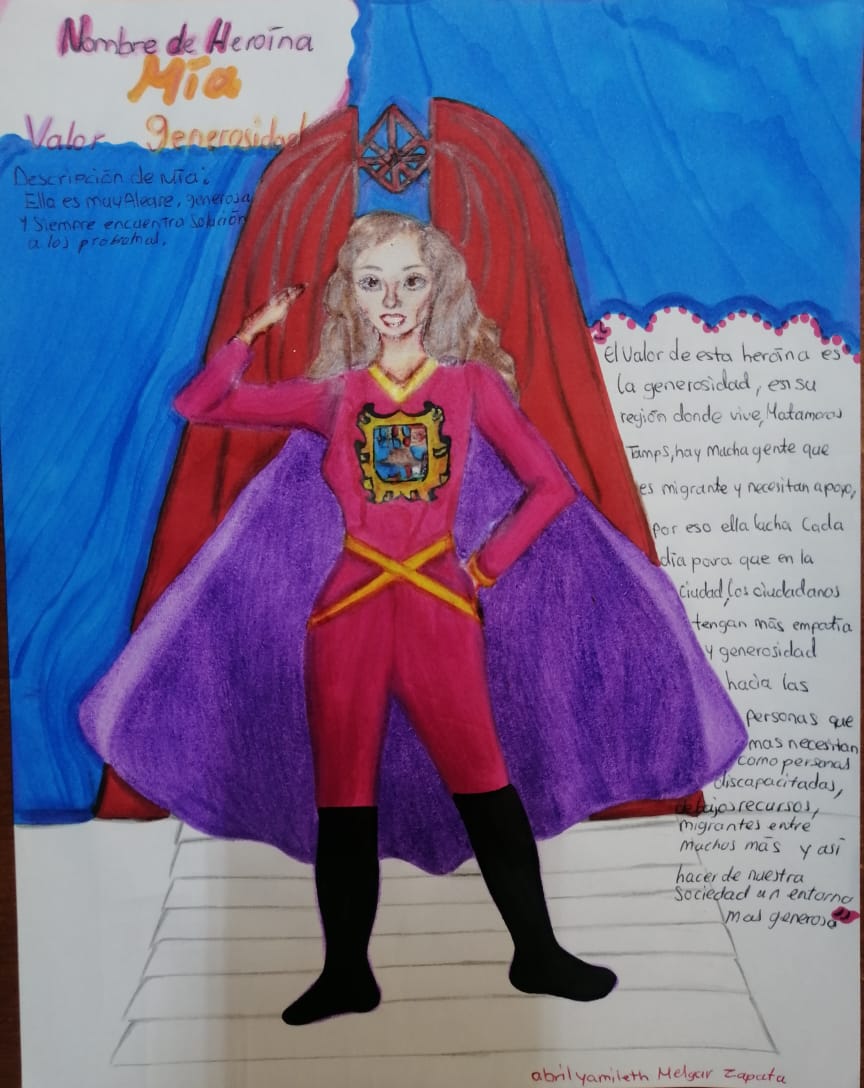 Nombre de Heroína
Mía
Valor generosidad
Descripción de Mía:
Ella es muy Alegre, generosa
y Siempre encuentra solución
a los probemal.
El Valor de esta heroína es
la generosidad, en su
región donde vive, Matamoros
Tamps, hay Mucha gente que
es migrante y necesitan apoyo,
por eso ella lucha Cada
día para que en la
ciudad, los ciudadanos
tengan más empatía
y generosidad
hacia las
personas que
mas necesitan
como personas
discapacitadas,
de bajos recursos,
migrantes entre
muchos más y así
hacer de nuestra
Sociedad un entorno
mas generoso
abril yamileth Melgar Zapata